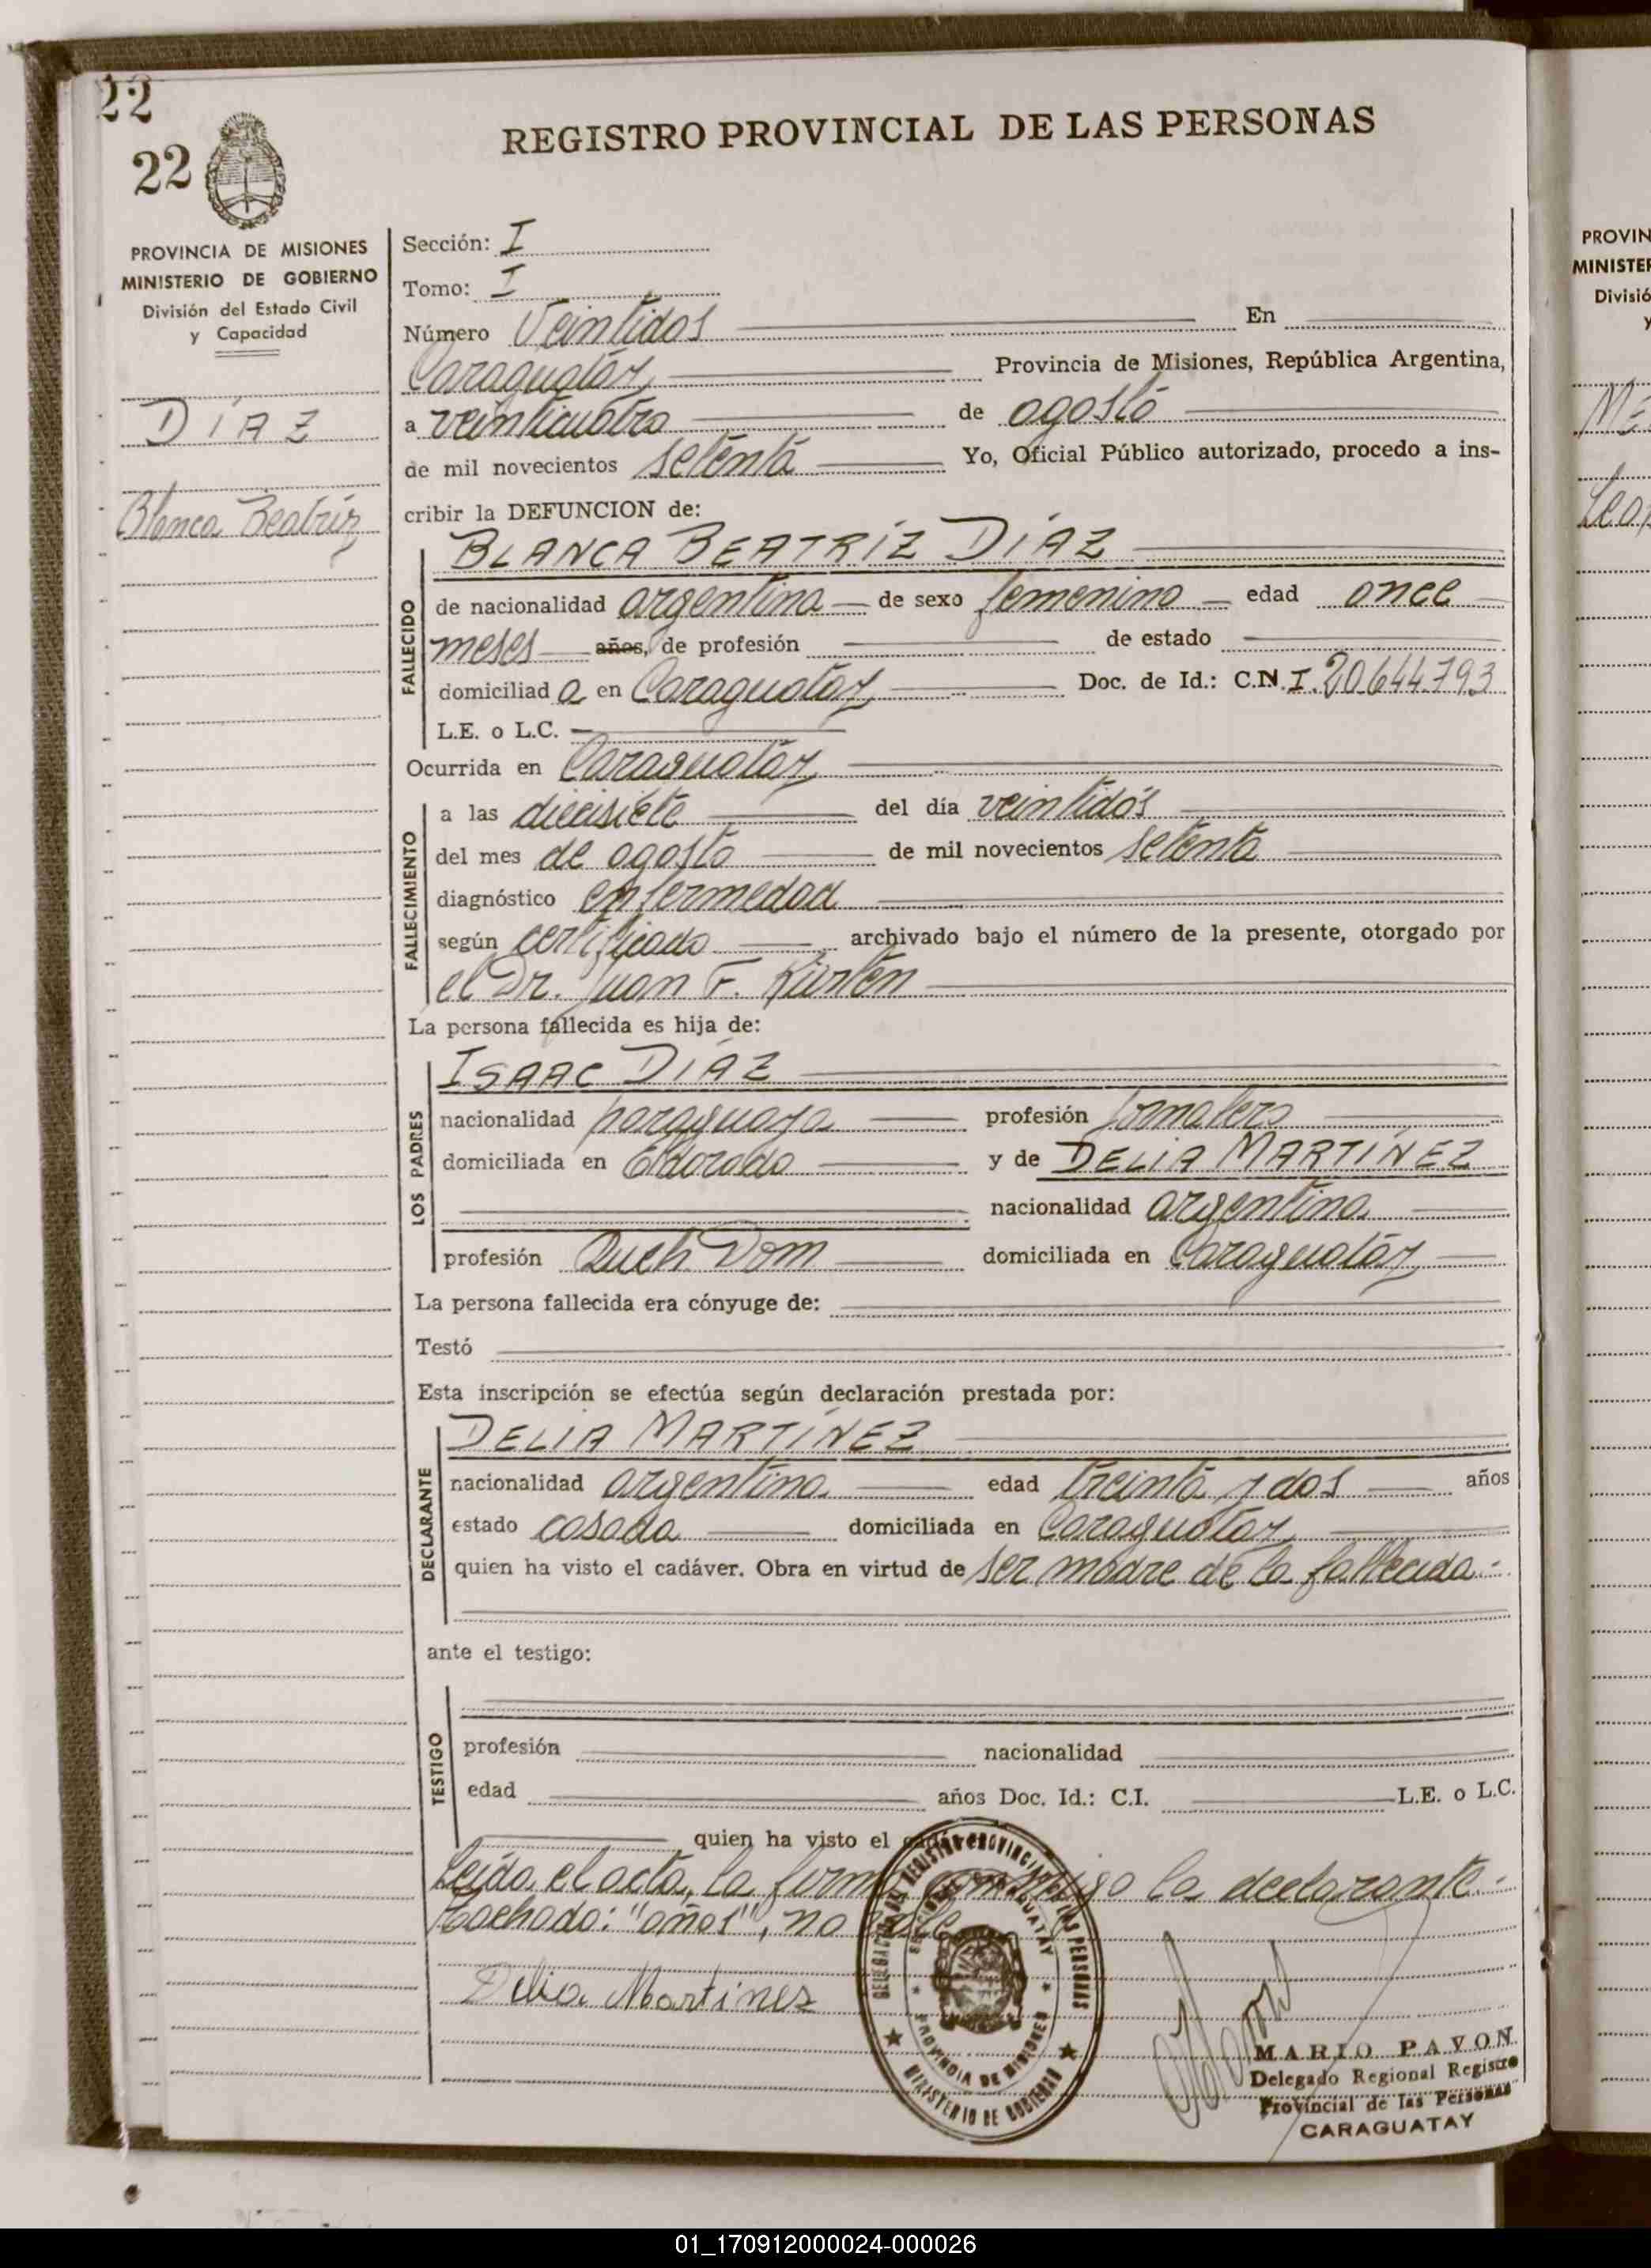 22
22
REGISTRO PROVINCIAL DE LAS PERSONAS
PROVINCIA DE MISIONES
MINISTERIO DE GOBIERNO
División del Estado Civil
y Capacidad
DÍAZ
Blanca Beatríz
Sección: I
Tomo: I
Número Veintidos En
Caraguatáy Provincia de Misiones, República Argentina,
a veinticuatro de agosto
de mil novecientos setenta Yo, Oficial Público autorizado, procedo a ins-
cribir la DEFUNCION de:
BLANCA BEATRÍZ DÍAZ
FALLECIDO
de nacionalidad argentina de sexo femenino edad once
meses años, de profesión de estado
domiciliad a en Caraguatay Doc. de Id.: C.N.I. 20.644.793
L.E. o L.C.
Ocurrida en Caraguatáy
FALLECIMIENTO
a las diecisiete del día veintidós
del mes de agosto de mil novecientos setenta
diagnóstico enfermedad
según certificado archivado bajo el número de la presente, otorgado por
el Dr. Juan F.
La persona fallecida es hija de:
LOS PADRES
ISAAC DÍAZ
nacionalidad paraguaya profesión Jornalero
domiciliada en Eldorado y de DELIA MARTÍNEZ
nacionalidad argentina
profesión Queh. Dom domiciliada en Caraguatáy
La persona fallecida era cónyuge de:
Testó
Esta inscripción se efectúa según declaración prestada por:
DECLARANTE
DELIA MARTÍNEZ
nacionalidad argentina edad treinta y dos años
estado casada domiciliada en Caraguatay
quien ha visto el cadáver. Obra en virtud de ser madre de la fallecida.-
ante el testigo:
TESTIGO
profesión nacionalidad
edad años Doc. Id.: C.I. L.E. o L.C.
quien ha visto el
Leída el acta, la firma conmigo la declarante.-
Tachado: "años", no vale
Delia Martinez
DELEGACION DEL REGISTRO PROVINCIAL DE LAS PERSONAS
CARAGUATAY
PROVINCIA DE MISIONES
MINISTERIO DE GOBIERNO
MARIO PAVON
Delegado Regional Registro
Provincial de las Personas
CARAGUATAY
PROVIN
MINISTER
Divisió
y
01_170912000024-000026